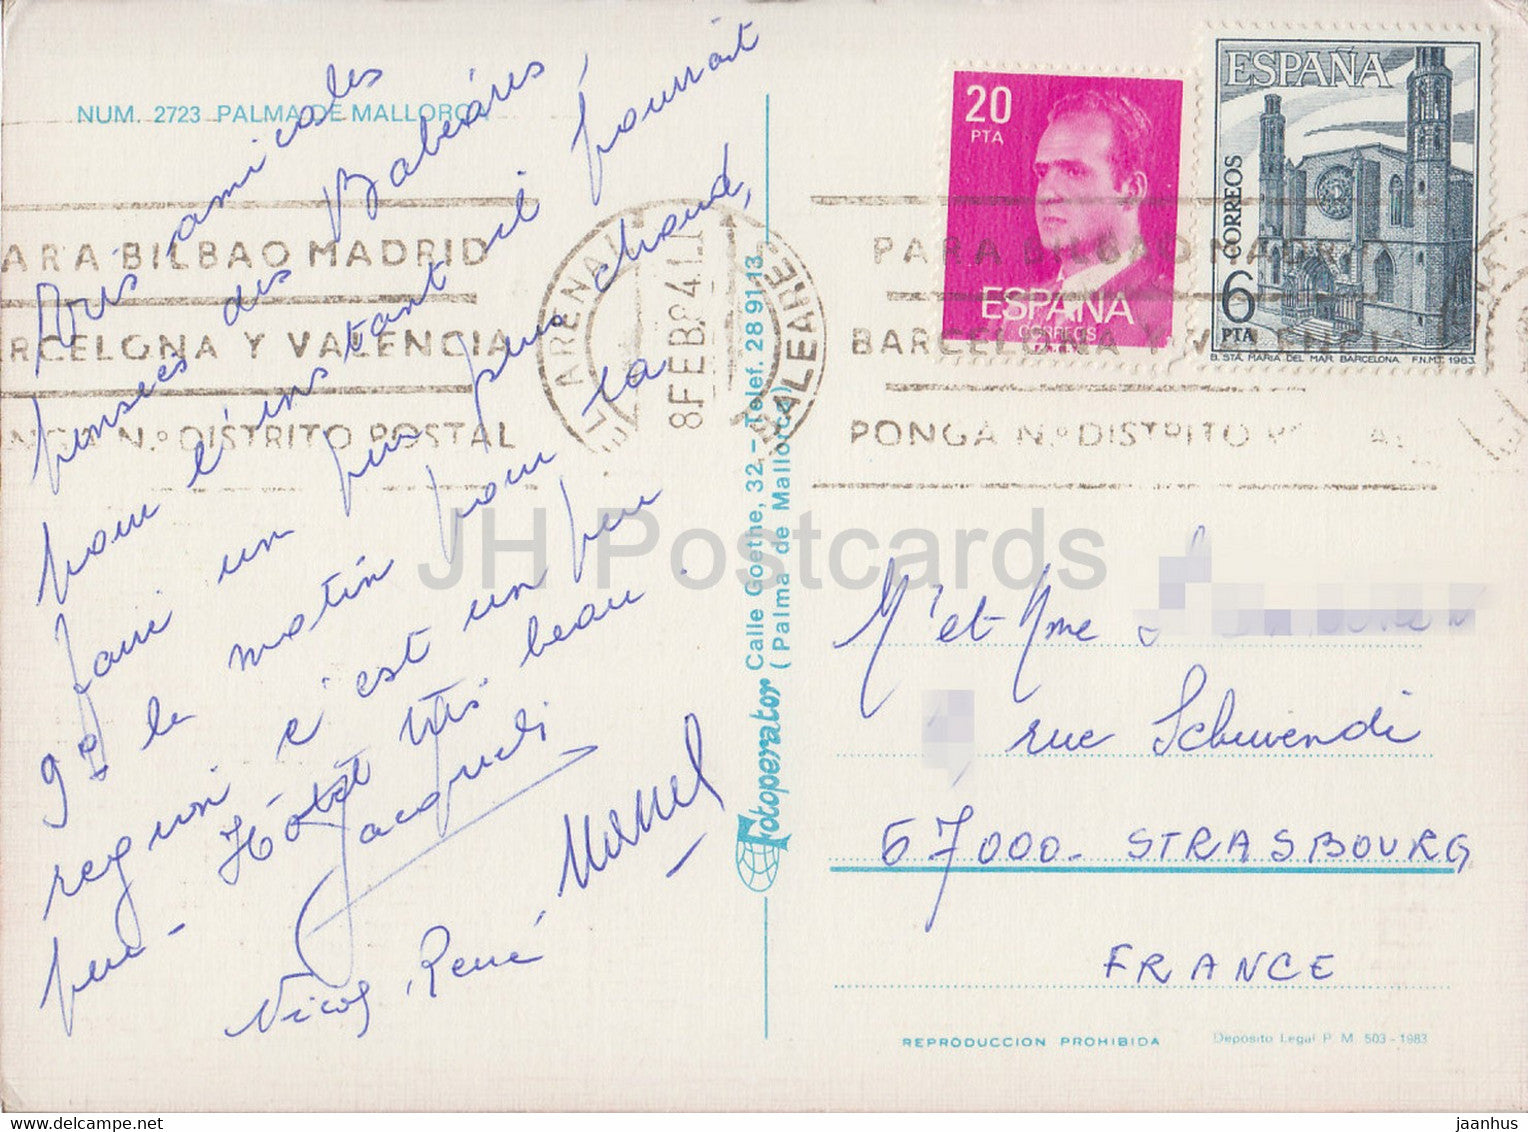 NUM. 2723 PALMA DE MALLORCA
Très amicales
pensées des Baléares,
pour l'instant il pourrait
faire un peu plus chaud,
9° le matin pour la
région c'est un peu
peu - Hôtel très beau.
Jacqueli
Nicos, René Marcel
PARA BILBAO MADRID
BARCELONA Y VALENCIA
PONGA N.º DISTRITO POSTAL
EL ARENAL
8 FEB 84
BALEARES
PARA BILBAO MADRID
BARCELONA Y VALENCIA
PONGA N.º DISTRITO POSTAL
20
PTA
ESPAÑA
CORREOS
ESPAÑA
CORREOS
6
PTA
B. STA. MARIA DEL MAR. BARCELONA F.N.M.T. 1983
Fotoperator Calle Goethe, 32 - Telef. 28 91 13
(Palma de Mallorca)
M' et Mme
rue Schwendi
67000 - STRASBOURG
FRANCE
REPRODUCCION PROHIBIDA
Deposito Legal P. M. 503 - 1983
JH Postcards
jaanhus